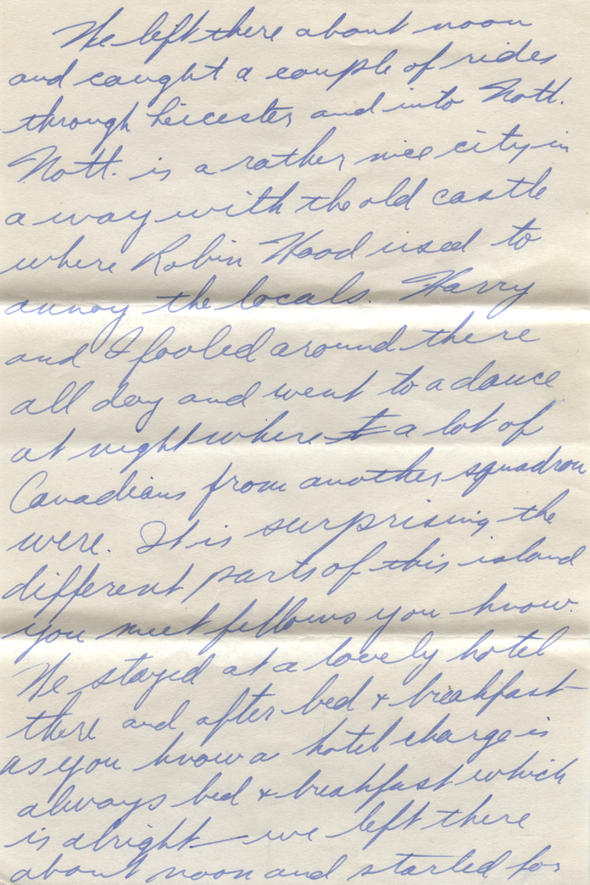 We left there about noon
and caught a couple of rides
through Leicester and into Nott.
Nott. is a rather nice city in
a way with the old castle
where Robin Hood used to
annoy the locals. Harry
and I fooled around there
all day and went to a dance
at night where a lot of
Canadians from another squadron
were. It is surprising the
different parts of this island
you meet fellows you know.
We stayed at a lovely hotel
there and after bed & breakfast
as you know a hotel charge is
always bed & breakfast which
is alright — we left there
about noon and started for